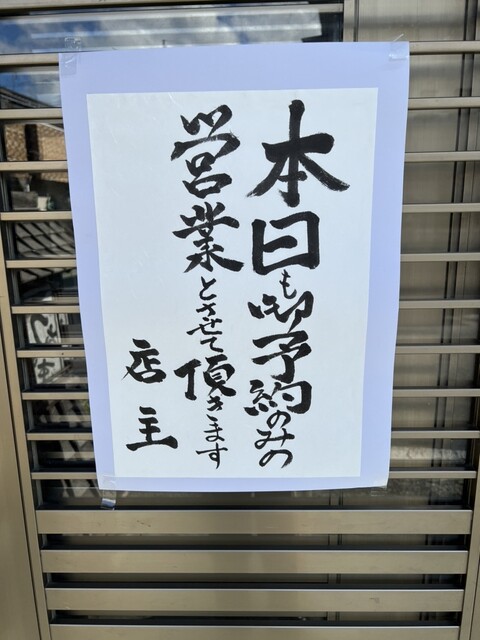 本日も御予約のみの
営業とさせて頂きます
店主